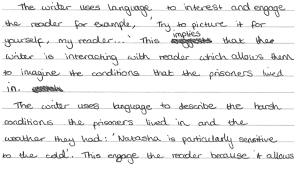 The writer uses language to interest and engage
the reader for example, 'Try to picture it for
yourself, my reader...' This implies that the
writer is interacting with reader which allows them
to imagine the conditions that the prisoners lived
in.
The writer uses language to describe the harsh
conditions the prisoners lived in and the
weather they had: 'Natasha is particularly sensitive
to the cold'. This engage the reader because it allows